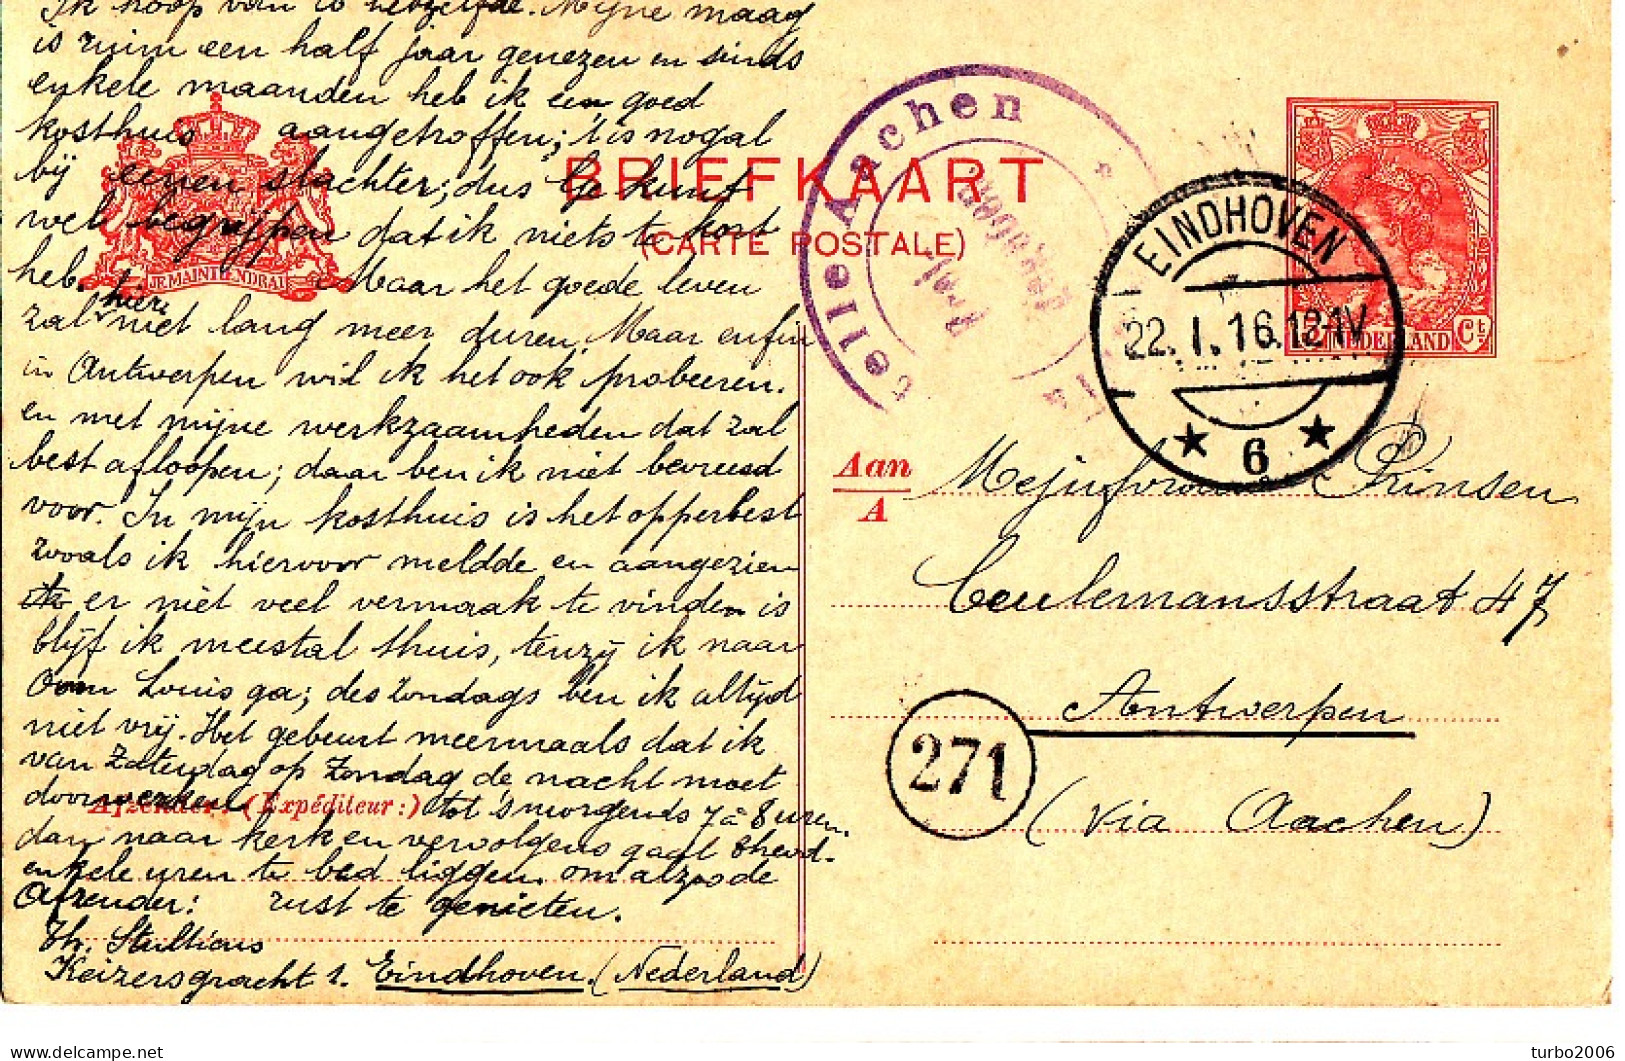 Ik hoop van U hetzelfde. Mijne maag
is ruim een half jaar genezen en sinds
enkele maanden heb ik een goed
kosthuis aangetroffen; 't is nogal
bij eenen slachter; dus Ge kunt
wel begrijpen dat ik niets te kort
heb. Maar het goede leven
zal hier niet lang meer duren. Maar enfin
in Antwerpen wil ik het ook probeeren.
en met mijne werkzaamheden dat zal
best afloopen; daar ben ik niet bevreesd
voor. In mijn kosthuis is het opperbest
zooals ik hiervoor meldde en aangezien
er niet veel vermaak te vinden is
blijf ik meestal thuis, tenzij ik naar
Oom Louis ga; des Zondags ben ik altijd
niet vrij. Het gebeurt meermaals dat ik
van Zaterdag op Zondag de nacht moet
doorwerken tot 's morgends 7 à 8 uren.
dan naar kerk en vervolgens gaat
enkele uren te bed liggen om alzoo de
rust te genieten.
Afzender:
Th. Stultiens
Keizersgracht 1. Eindhoven. (Nederland)
JE MAINTIENDRAI
BRIEFKAART
(CARTE POSTALE)
Afzender: (Expéditeur:)
Aachen
EINDHOVEN
22.1.16.12-1V
6
NEDERLAND
Ct
Aan
A
Mejufvrouw Prinsen
Ceulemansstraat 47
Antwerpen
(via Aachen)
271
delcampe.net
turbo2006